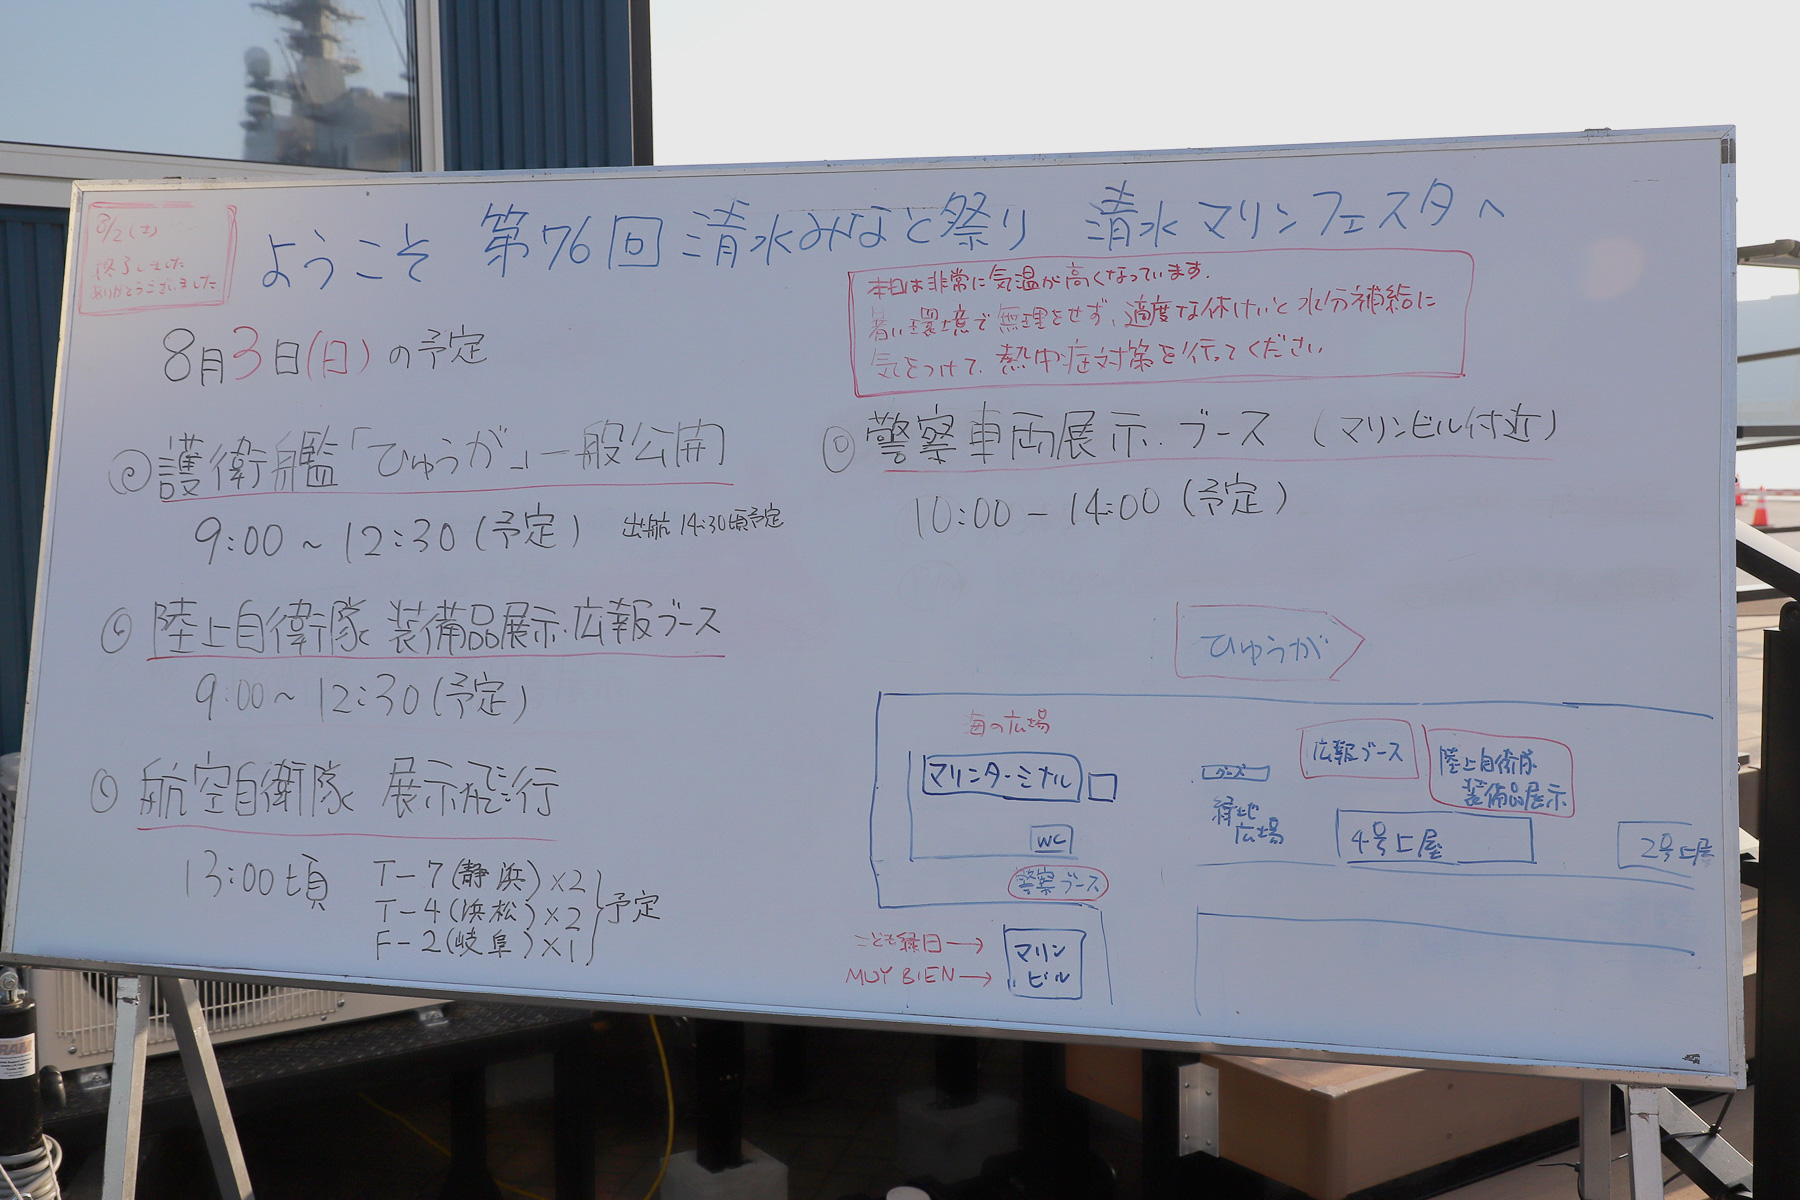 8/2(土)
終了しました
ありがとうございました
ようこそ 第76回 清水みなと祭り 清水マリンフェスタへ
8月3日(日)の予定
本日は非常に気温が高くなっています.
暑い環境で無理をせず、適度な休けいと水分補給に
気をつけて、熱中症対策を行ってください
◎護衛艦「ひゅうが」一般公開
9:00~12:30(予定) 出航14:30頃予定
◎陸上自衛隊 装備品展示・広報ブース
9:00~12:30(予定)
◎航空自衛隊 展示飛行
13:00頃
T-7(静浜)×2
T-4(浜松)×2
F-2(岐阜)×1
予定
◎警察車両展示・ブース (マリンビル付近)
10:00-14:00(予定)
ひゅうが
海の広場
マリンターミナル
WC
警察ブース
こども縁日→
MUY BIEN→
マリン
ビル
グッズ
緑地
広場
広報ブース
陸上自衛隊
装備品展示
4号上屋
2号上屋